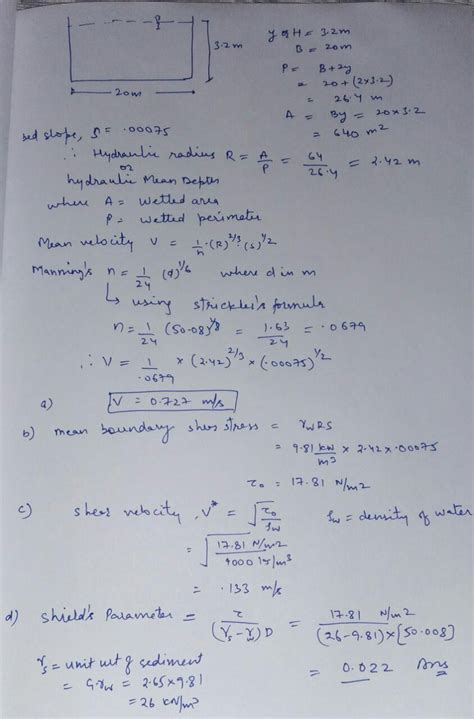 3.2m
20m
y or H = 3.2m
B = 20m
P = B+2y
= 20+(2×3.2)
= 26.4 m
A = By = 20×3.2
= 640 m²
bed slope, S = .00075
∴ Hydraulic radius R = A/P = 64/26.4 = 2.42 m
or
hydraulic Mean Depth
where A = Wetted area
P = Wetted perimeter
Mean velocity V = 1/n · (R)^2/3 (S)^1/2
Manning's n = 1/24 (d)^1/6 where d in m
↳ using strickler's formula
n = 1/24 (50.08)^1/8 = 1.63/24 = .0679
∴ V = 1/.0679 × (2.42)^2/3 × (.00075)^1/2
a) V = 0.727 m/s
b) mean boundary shear stress = γwRS
= 9.81 kW/m3 × 2.42 × .00075
τo = 17.81 N/m2
c) shear velocity, V* = √τo/ρw ρw = density of water
= √17.81 N/m2/1000 /m3
= .133 m/s
d) Shield's Parameter = τ/(γs-γw)D = 17.81 N/m2/(26-9.81)×[50.008]
γs = unit wt of sediment = 0.022 Ans
= Gγw = 2.65×9.81
= 26 KN/m3